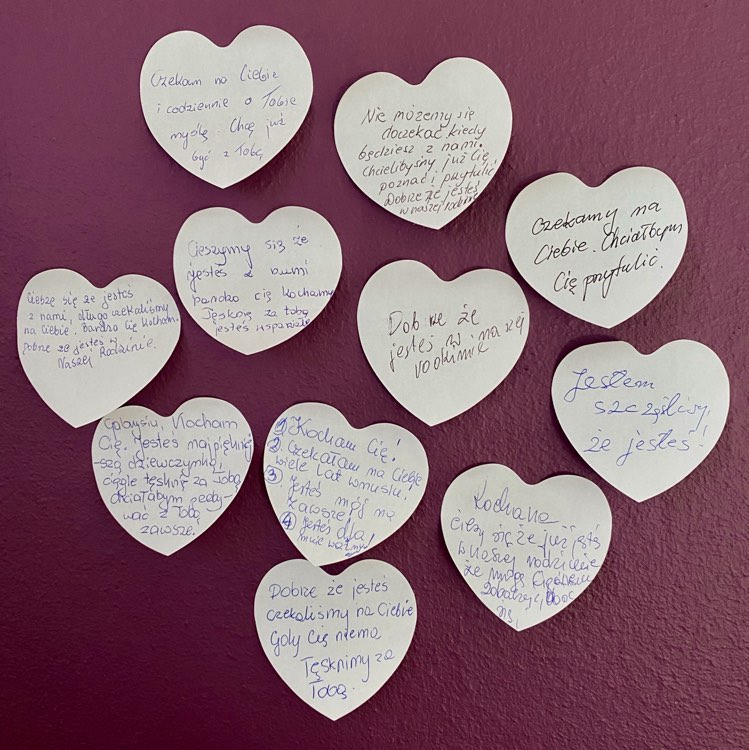 Czekam na Ciebie
i codziennie o Tobie
myślę. Chcę już
być z Tobą
Nie możemy się
doczekać kiedy
będziesz z nami.
Chcielibyśmy już Cię
poznać i przytulić
Dobrze że jesteś
w naszej rodzinie
Czekamy na
Ciebie. Chciałbym
Cię przytulić.
Cieszymy się że
jesteś z nami
bardzo cię kochamy
Tęsknię za tobą
jesteś wspaniała
Cieszę się że jesteś
z nami, długo czekaliśmy
na Ciebie. Bardzo Cię kocham.
Dobrze że jesteś w
Naszej Rodzinie.
Dobrze że
jesteś w naszej
rodzinie
Jestem
szczęśliwy,
że jesteś!
Kocham
Cię. Jesteś najpiękniej-
-szą dziewczynką,
ciągle tęsknię za Tobą
chciałabym
wać z Tobą
zawsze.
1) Kocham Cię!
2. Czekałam na Ciebie
wiele lat wnusiu!
3) Jesteś mój na
zawsze!
4) Jesteś dla
mnie ważny!
Kochana
cieszy się że już jesteś
w naszej rodzinie
że mogę Cię
Dobrze że jesteś
czekaliśmy na Ciebie
Gdy Cię niema
Tęsknimy za
Tobą.